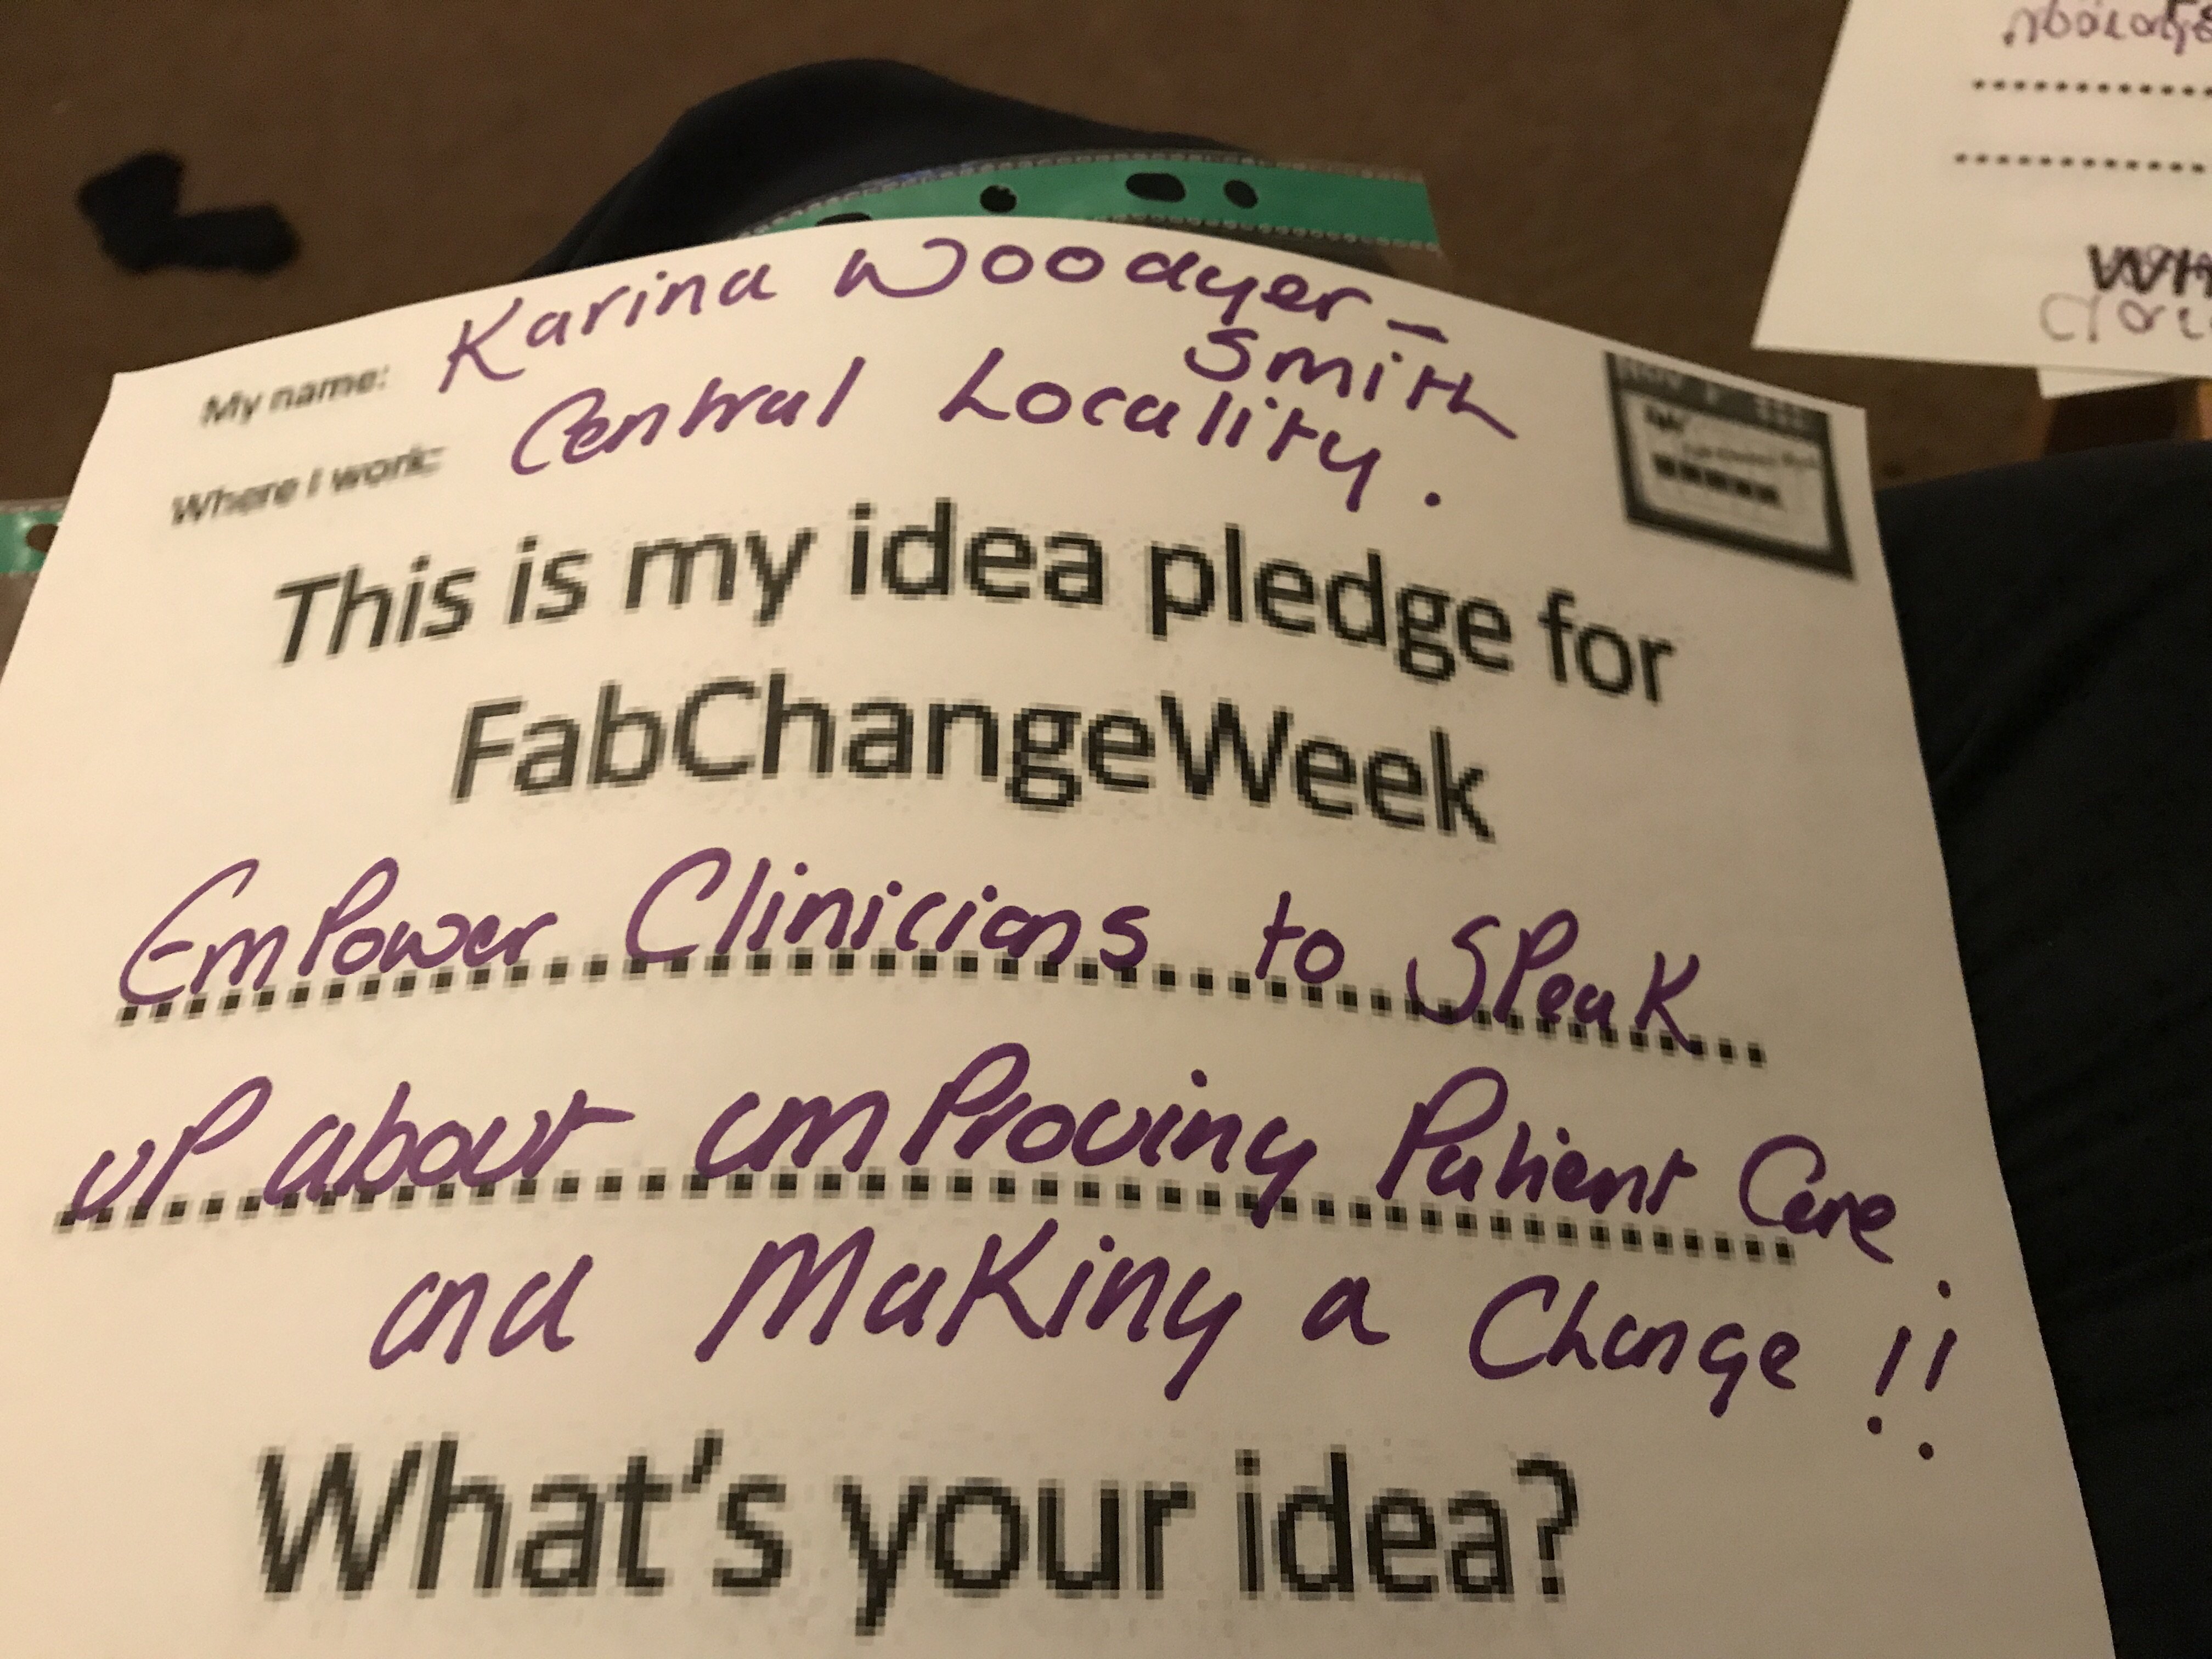 My name: Karina Woodyer-
Smith
Where I work: Central Locality.
This is my idea pledge for
FabChangeWeek
EmPower Clinicians to SPeak
uP about imProving Patient Care
and MaKing a Change !!
What's your idea?